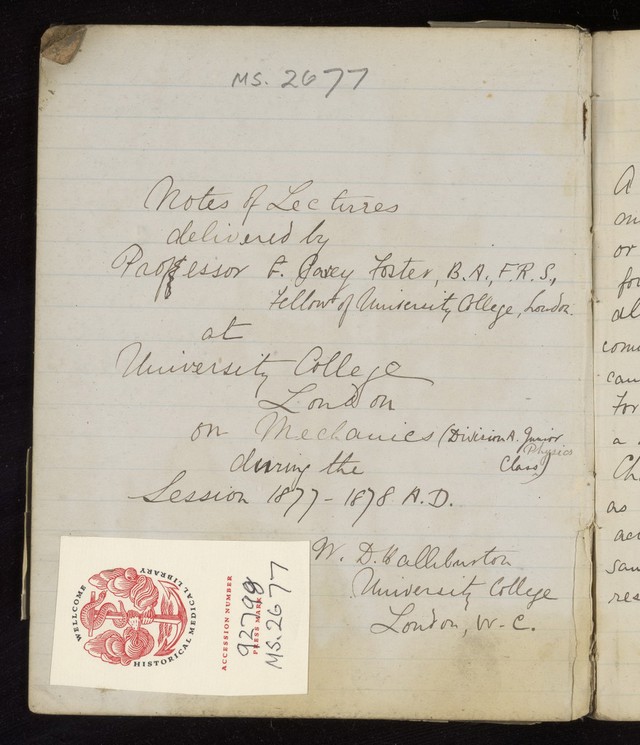 MS. 2677
Notes of Lectures
delivered by
Professor F. Carey Foster, B.A., F.R.S.,
Fellow of University College, London.
at
University College
London
on Mechanics (Division A. Junior
Physics
Class)
during the
Session 1877-1878 A.D.
W. D. Halliburton
University College
London, W.C.
WELLCOME
HISTORICAL MEDICAL LIBRARY
ACCESSION NUMBER
92798
PRESS MARK
MS. 2677
A
or
as